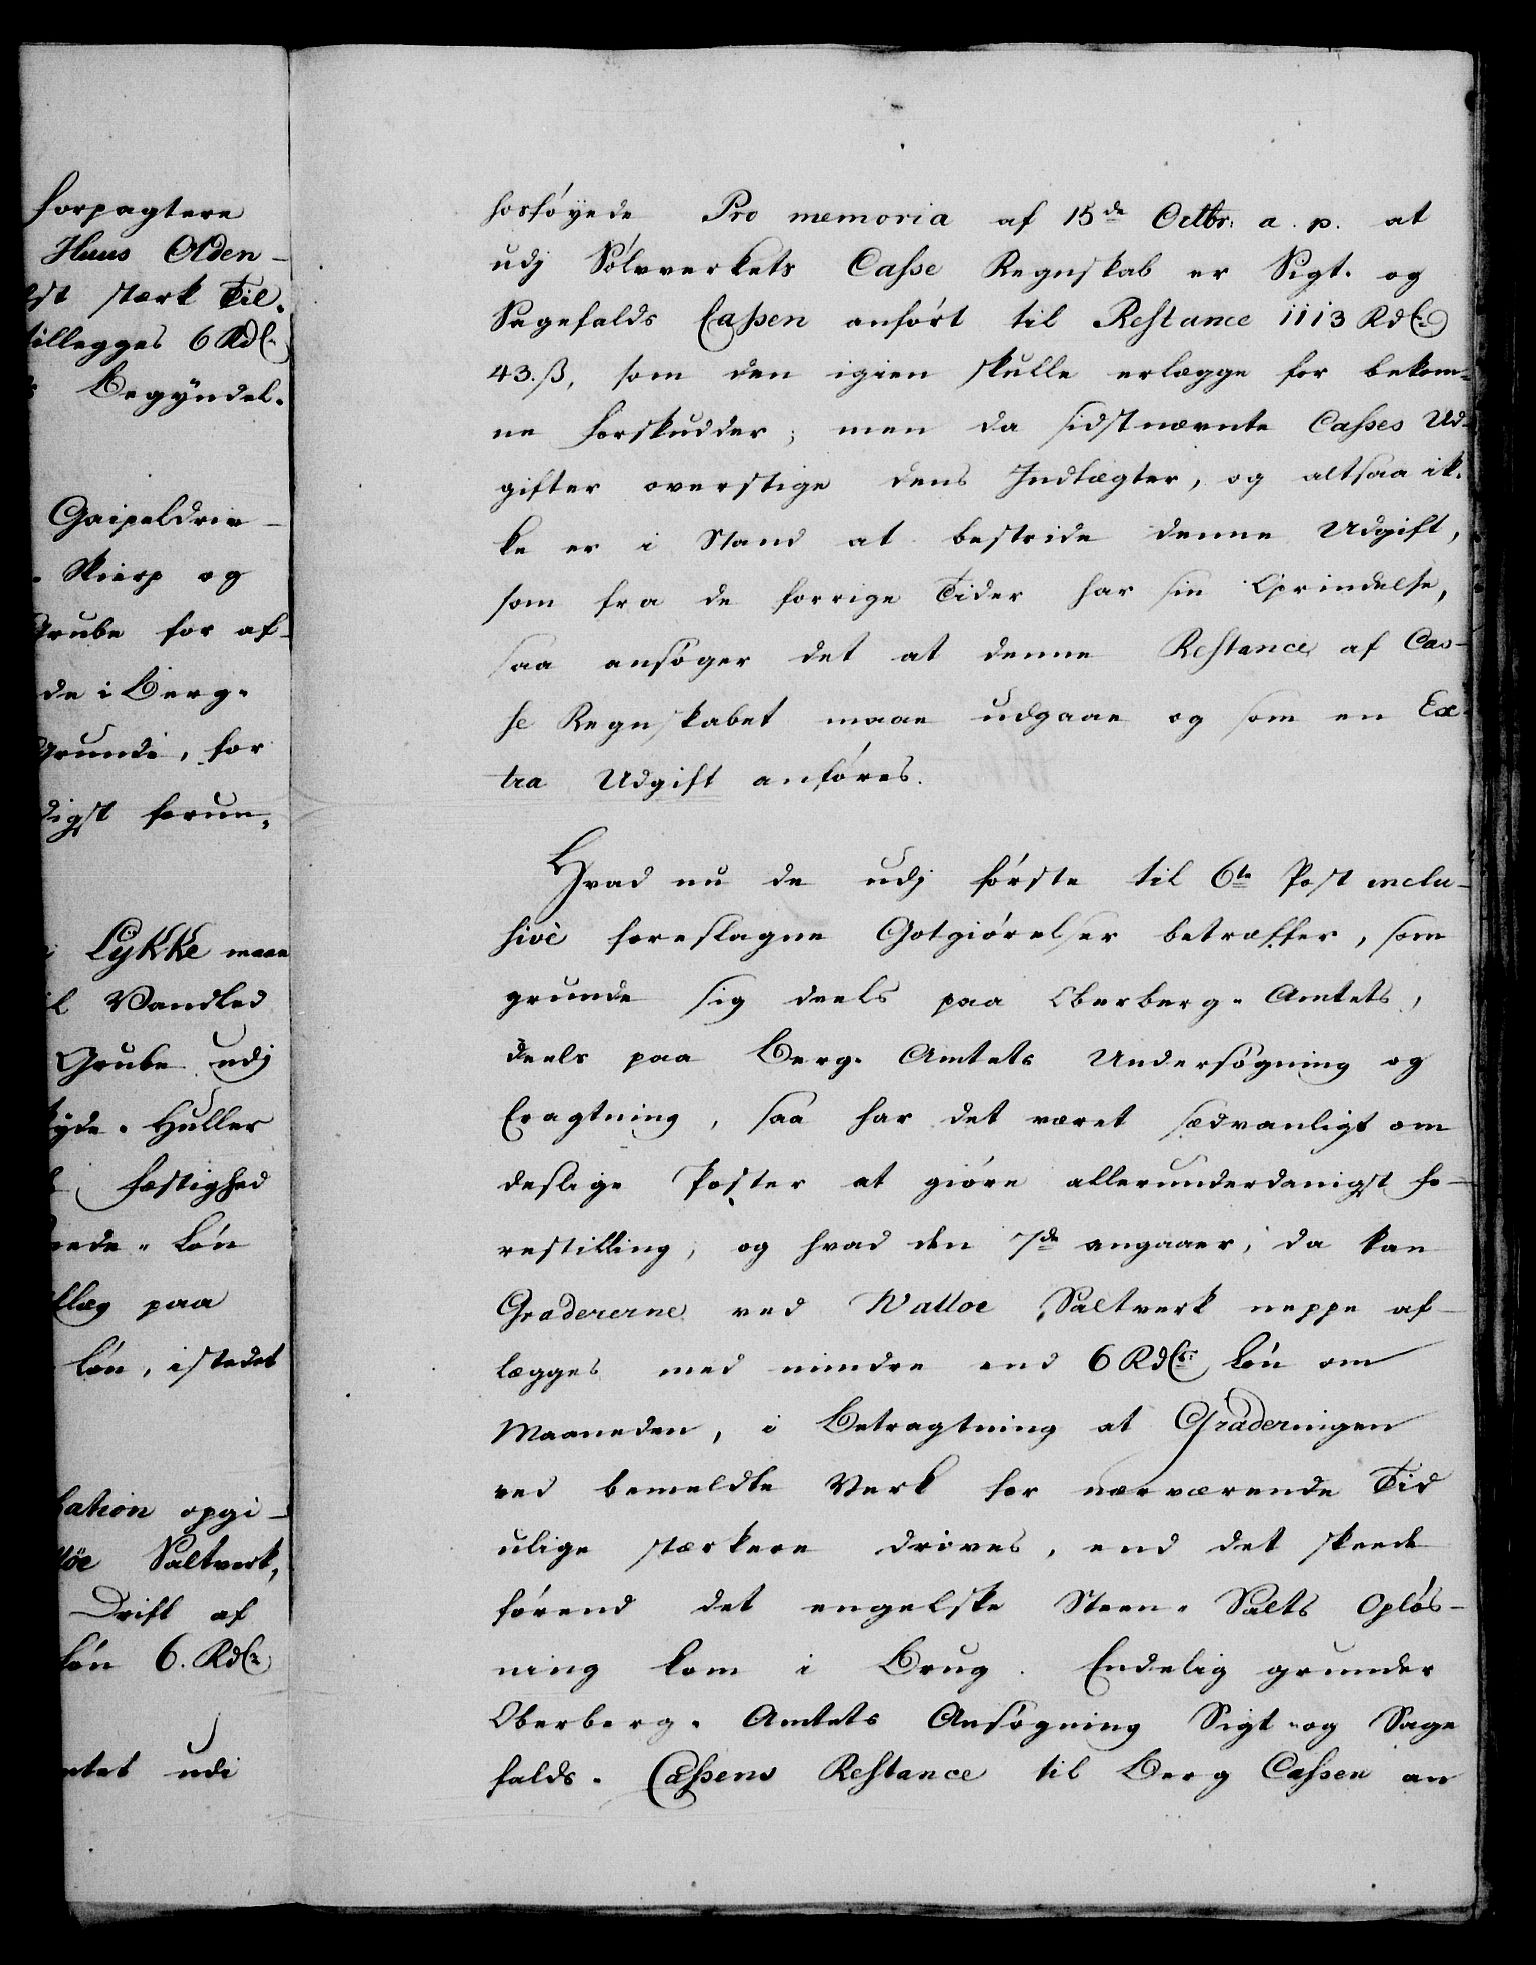 forpagtere
Huus Olden-
stærk Til-
tillegges 6 Rdlr
Begyndel-
Gaipeldrin-
Skierp og
Grube for af-
de i Berg-
Grunde, for
digst forun-
Lykke maae
Vandled
Grube udj
Huller
fæstighed
Løn
læg paa
Løn, istedet
opgi-
Saltverk,
Drift af
Løn 6. Rdlr
udi
hosføyede Pro memoria af 15de Octbr: a. p. at
udj Sølvverkets Casse Regnskab er Sigt- og
Sagefalds Cassen anført til Restance 1113 Rdlr
43.ß, som den igien skulle erlægge for bekom-
ne forskudder; men da sidstnævnte Casses Ud-
gifter overstige dens Indtægter, og altsaa ik-
ke er i Stand at bestride denne Udgift,
som fra de forrige Tider har sin Oprindelse,
saa ansøger det at denne Restance af Cas-
se Regnskabet maae udgaae og som en Ex-
tra Udgift anføres.
Hvad nu de udj første til 6te Post inclu-
sivè foreslagne Gotgiørelser betræffer, som
grunde sig deels paa Oberberg-Amtets,
deels paa Berg-Amtets Undersøgning og
Eragtning, saa har det været sædvanligt om
deslige Poster at giøre allerunderdanigst fo-
restilling, og hvad den 7de angaaer, da kan
Gradererne ved Walloe Saltverk neppe af-
lægges med mindre end 6 Rdlr: Løn om
Maaneden, i Betragtning at Graderingen
ved bemeldte Verk for nærværende Tid
ulige stærkere drives, end det skeede
førend det engelske Steen-Salts Opløs-
ning kom i Brug. Endelig grunder
Oberberg-Amtets Ansøgning Sigt- og Sage
falds-Cassens Restance til Berg Cassen an